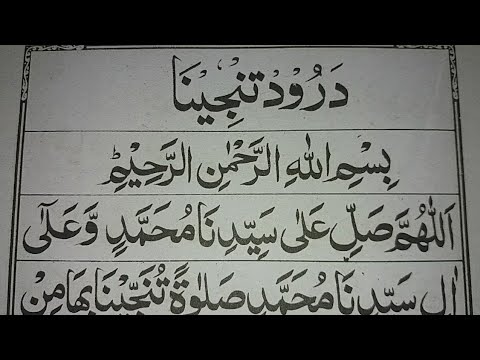 دَرُوْد تُنْجِيْنَا
بِسْمِ اللهِ الرَّحْمٰنِ الرَّحِيْمِ
اَللّٰهُمَّ صَلِّ عَلٰى سَيِّدِنَا مُحَمَّدٍ وَّعَلٰٓى
اٰلِ سَيِّدِنَا مُحَمَّدٍ صَلٰوةً تُنَجِّيْنَا بِهَا مِنْ